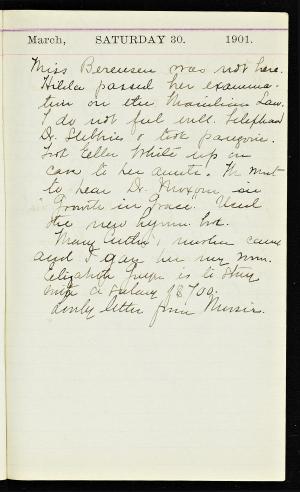 March, SATURDAY 30. 1901.
Miss Berensen was not here.
Hilda passed her examina-
tion on the Law.
I do not feel well. Telephoned
Dr. Stebbins & took paregoric.
Took Ellen White up on
cars to her aunt's. We went
to hear Dr. Moxom on
"Growth in Grace". Used
the new hymn bk.
Mary mother came
and I gave her my
Elizabeth is to stay
with a salary of $700.
Lovely letter from